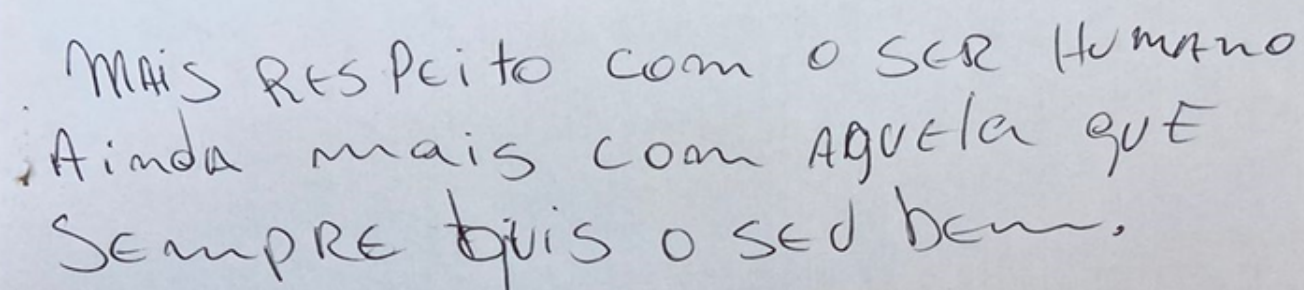 Mais RESPEito com o SER HumAno
Ainda mais com AquEla quE
SEmpRE quis o SEU bEm.